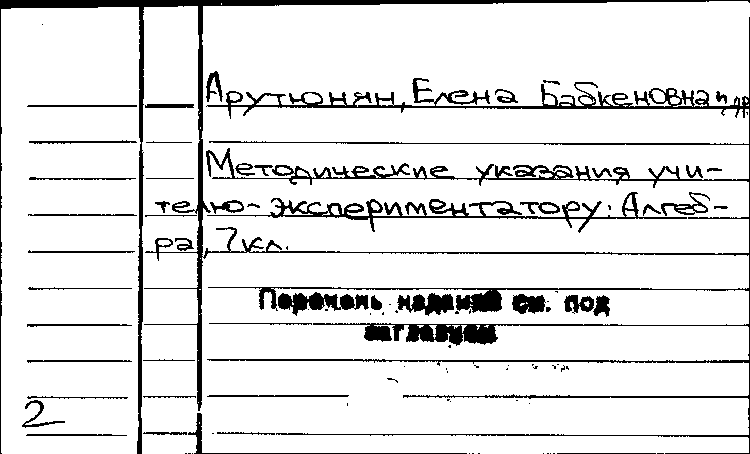 Арутюнян, Елена Бабкеновна и др
Методические указания учи-
телю-экспериментатору: Алгеб-
ра, 7 кл.
Перечень изданий см. под
заглавием
2